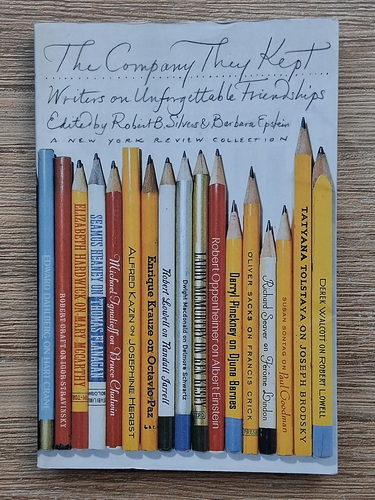 The Company They Kept
Writers on Unforgettable Friendships
Edited by Robert B. Silvers & Barbara Epstein
A NEW YORK REVIEW COLLECTION
EDWARD DAHLBERG ON HART CRANE
ROBERT CRAFT ON IGOR STRAVINSKY
ELIZABETH HARDWICK ON MARY McCARTHY
SEAMUS HEANEY ON THOMAS FLANAGAN
Michael Ignatieff on Bruce Chatwin
ALFRED KAZIN ON JOSEPHINE HERBST
Enrique Krauze on Octavio Paz
Robert Lowell on Randall Jarrell
Dwight Macdonald on Delmore Schwartz
Robert Oppenheimer on Albert Einstein
Darryl Pinckney on Djuna Barnes
OLIVER SACKS ON FRANCIS CRICK
Richard Seaver on Jérôme Lindon
SUSAN SONTAG ON Paul Goodman
TATYANA TOLSTAYA ON JOSEPH BRODSKY
DEREK WALCOTT ON ROBERT LOWELL